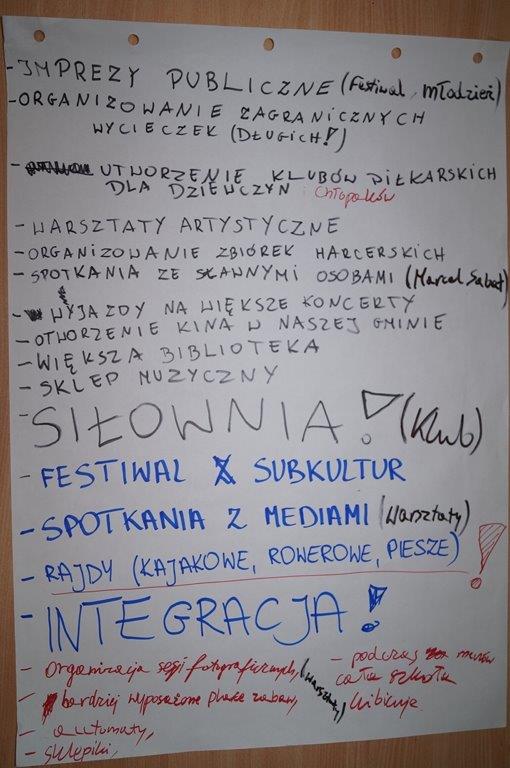 - IMPREZY PUBLICZNE (Festiwal, młodzież)
- ORGANIZOWANIE ZAGRANICZNYCH
WYCIECZEK (DŁUGICH!)
- UTWORZENIE KLUBÓW PIŁKARSKICH
DLA DZIEWCZYN i chłopaków
- WARSZTATY ARTYSTYCZNE
- ORGANIZOWANIE ZBIÓREK HARCERSKICH
- SPOTKANIA ZE SŁAWNYMI OSOBAMI (Marcel Sabat)
- WYJAZDY NA WIĘKSZE KONCERTY
- OTWORZENIE KINA W NASZEJ GMINIE
- WIĘKSZA BIBLIOTEKA
- SKLEP MUZYCZNY
- SIŁOWNIA! (Klub)
- FESTIWAL SUBKULTUR
- SPOTKANIA Z MEDIAMI (Warsztaty)
- RAJDY (KAJAKOWE, ROWEROWE, PIESZE) !
- INTEGRACJA!
- Organizacja sesji fotograficznych, (warsztaty)
- bardziej wyposażone place zabaw,
- automaty,
- sklepiki,
- podczas meczów
cała szkoła
kibicuje